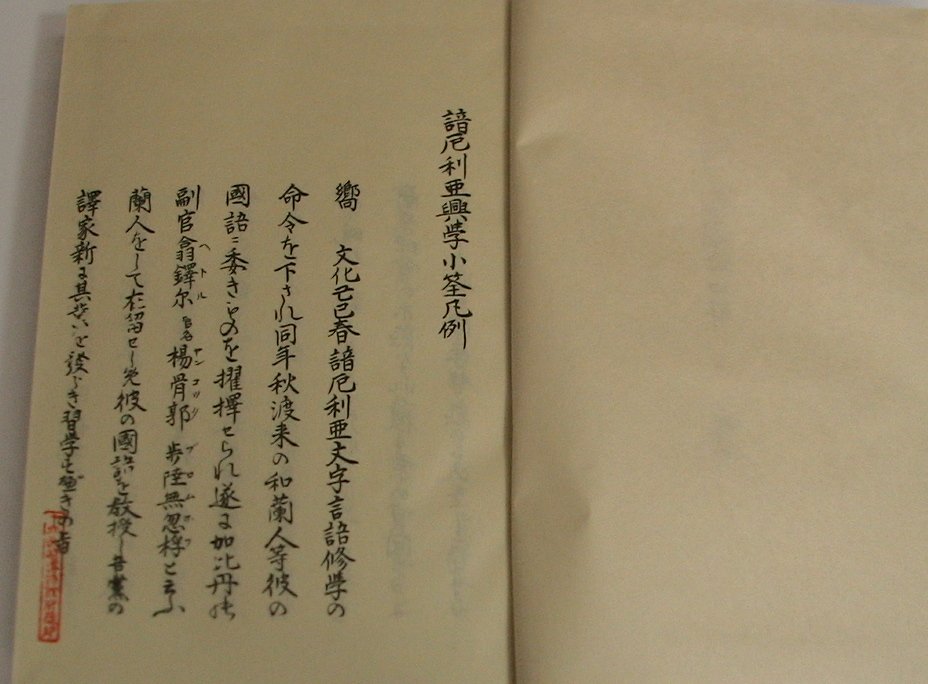 諳厄利亜興学小筌凡例
嚮 文化己巳春諳厄利亜文字言語修学の
命令を下され同年秋渡来の和蘭人等彼の
國語ニ委きものを擢擇せられ遂に加比丹
副官翁鐸尓ヘトル 官名 楊骨郭ヤンコツク 歩陸無忽桴ブロムホフと云ふ
蘭人をして在留せしめ彼の國語を教授し吾黨の
譯家新に其業を發らき習学すべきの旨